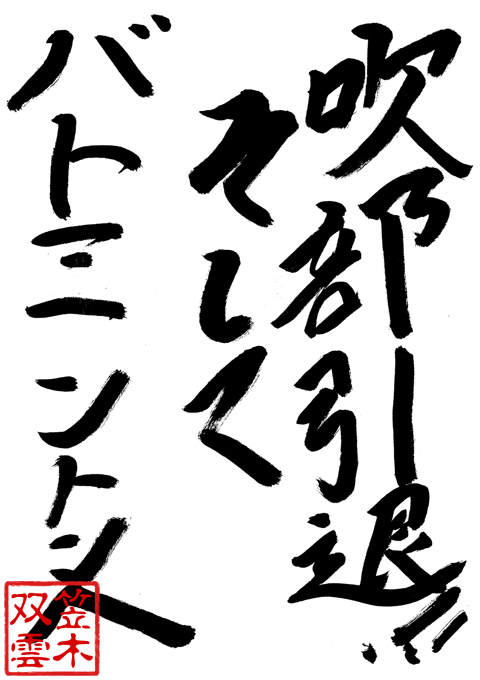 吹部引退!!
そして
バトミントンへ
笠木
双雲